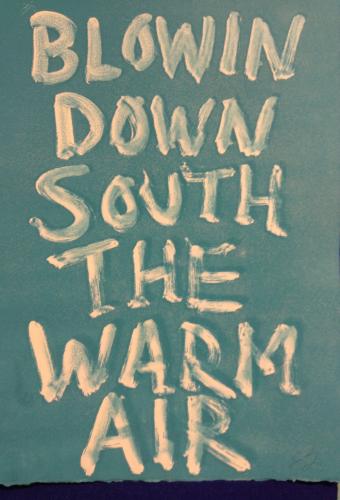 BLOWIN
DOWN
SOUTH
THE
WARM
AIR